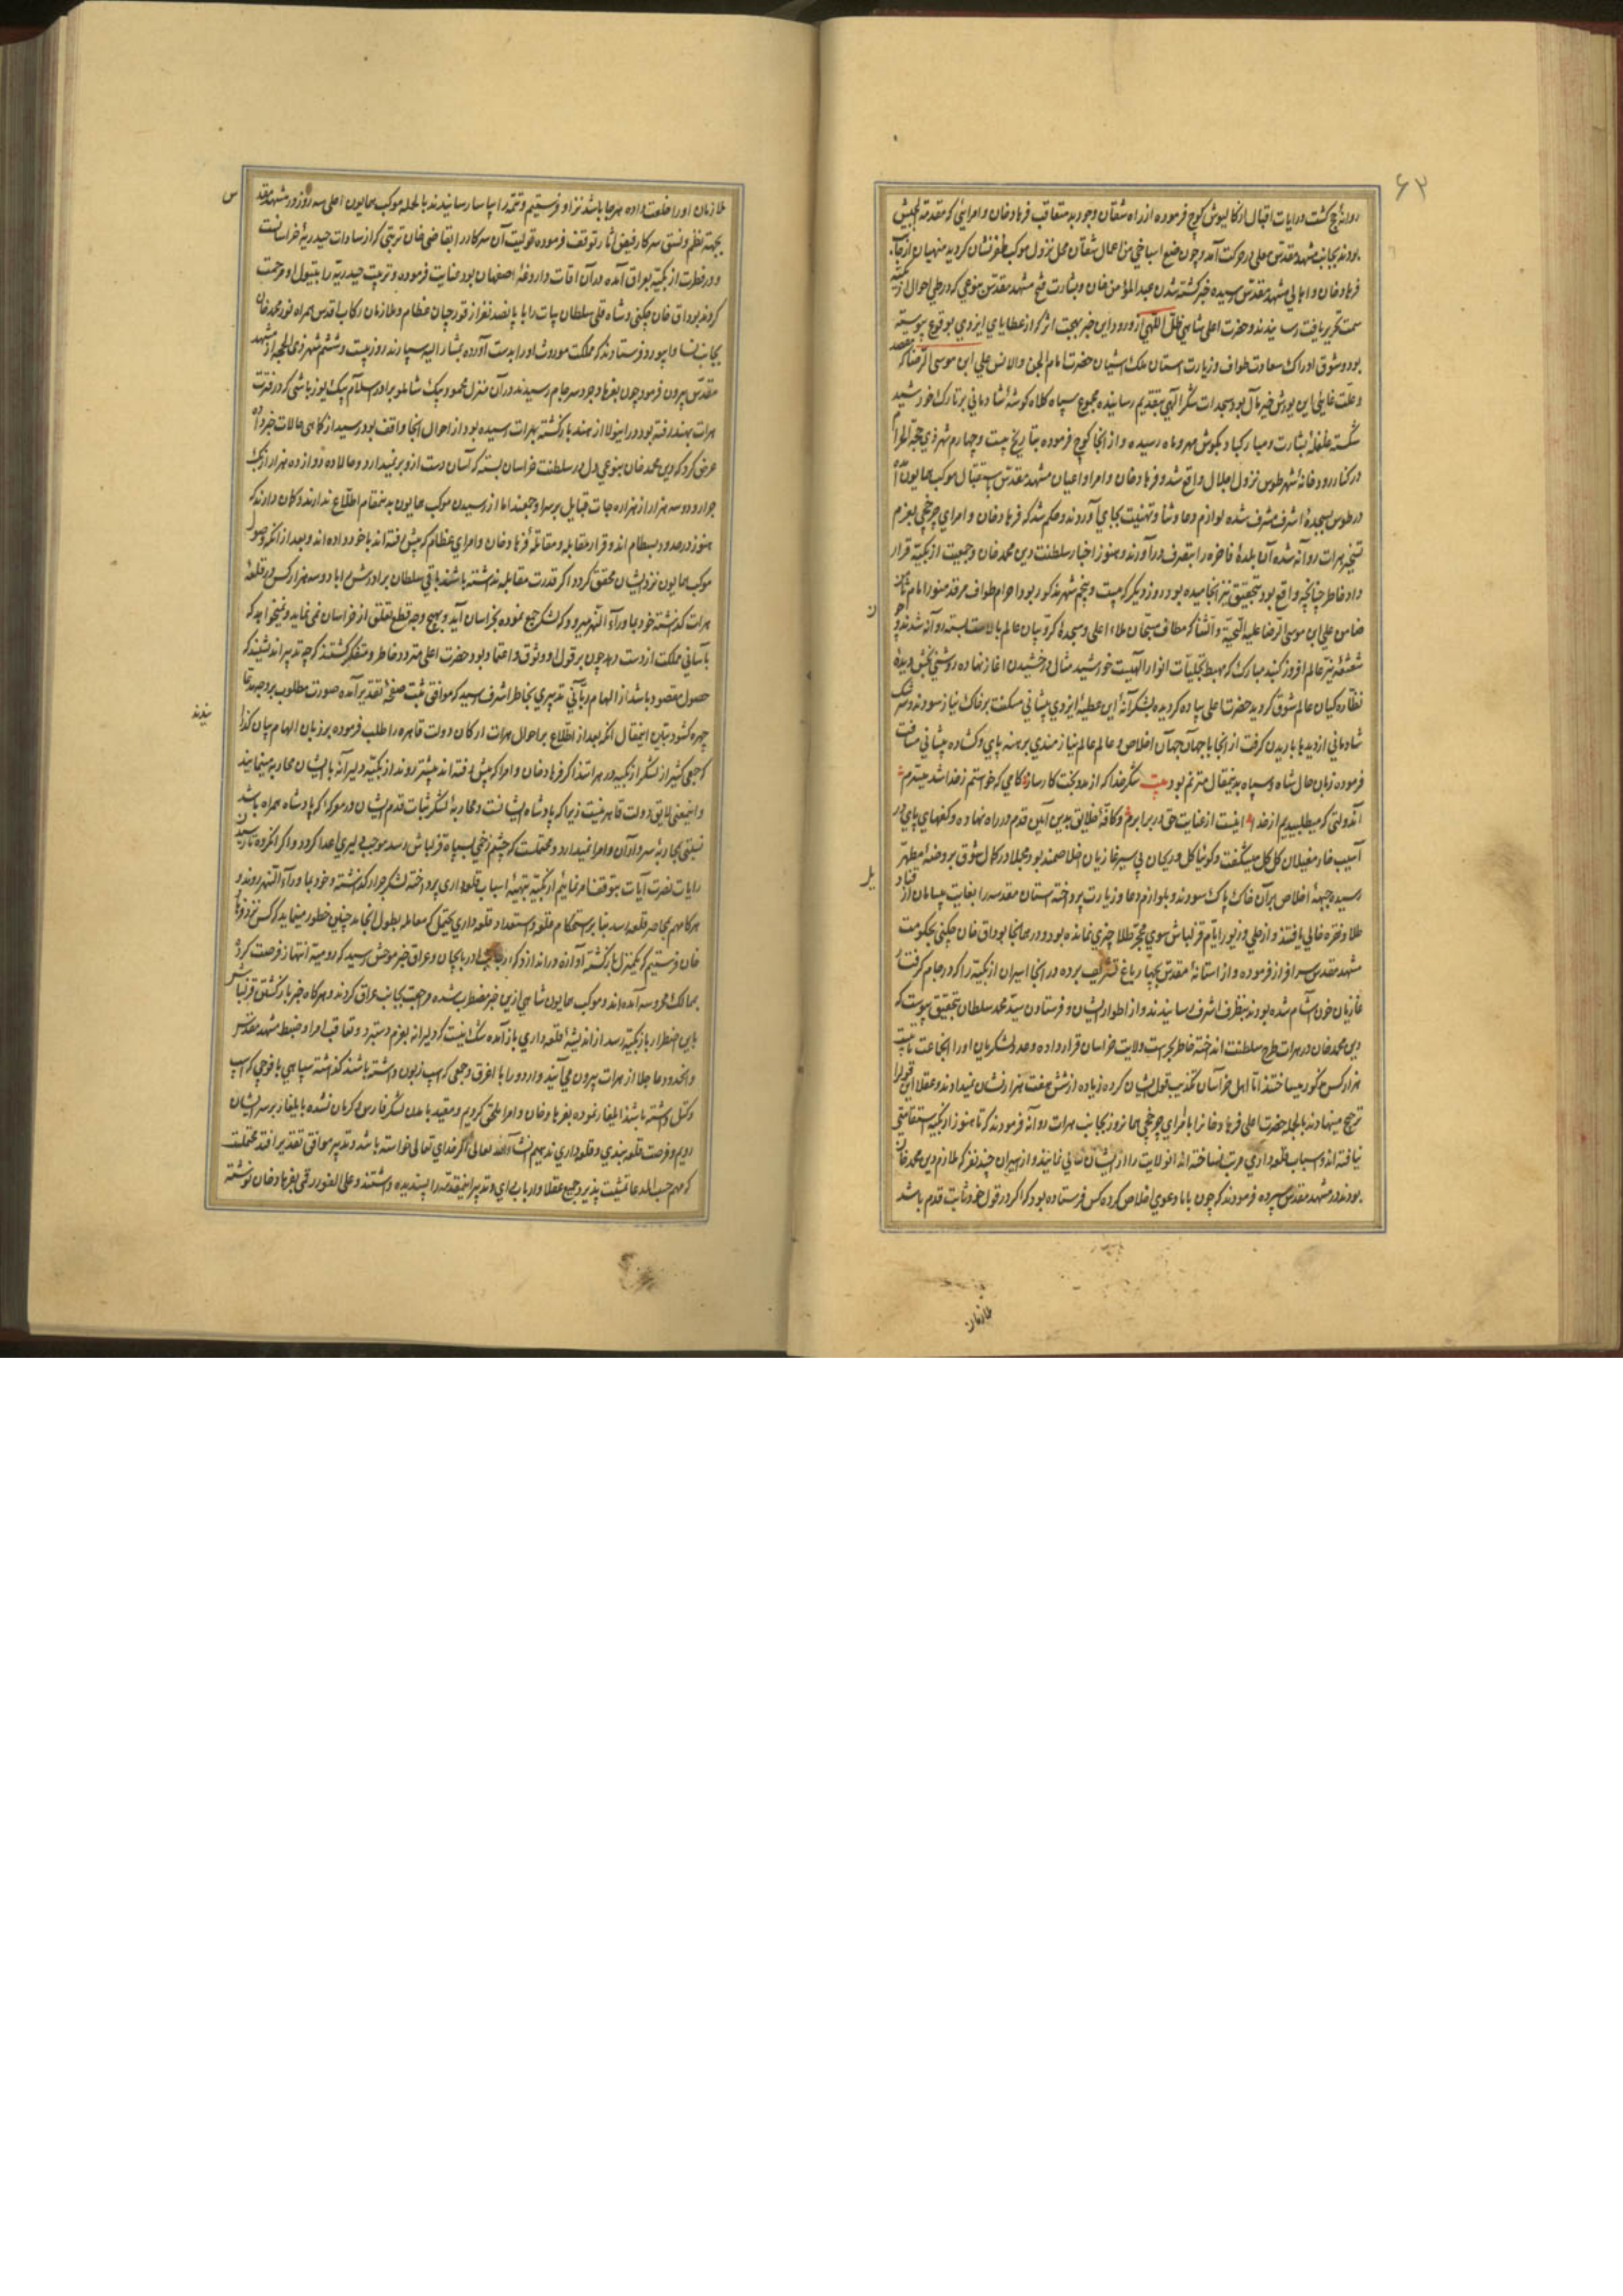 ۶۳
روانه کشت و رایات اقبال از کالپوش کوچ فرموده از راه شقان و جوربد متعاقب فرهاد خان و امرائی که مقدمة الجیش
بودند بجانب مشهد مقدس معلی در حرکت آمد و چون من اعمال شقان محل نزول موکب ظفر نشان کردید منهیان از جانب
فرهاد خان و اهالی مشهد مقدس رسیده خبر کشته شدن عبد المؤمن خان و بشارت فتح مشهد مقدس بنوعی که در طی احوال ازبکیه
سمت تحریر یافت رسانیدند و حضرت اعلی شاهی ظل اللهی از ورود این خبر بهجت اثر که از عطایای ایزدی بوقوع پیوسته
بود و شوق ادراک سعادت طواف و زیارت آستان ملک آشیان حضرت امام الجن و الانس علی ابن موسی الرضا که مقصد
و علت غایی این یورش خیر مآل بود سجدات شکر الهی بتقدیم رسانیده مجموع سپاه کلاه کوشهٔ شادمانی بر تارک خورشید
شکسته غلغلهٔ بشارت و مبارکباد بکوش مهر و ماه رسیده و از آنجا کوچ فرموده بتاریخ بیست و چهارم شهر ذی حجة الحرام
در کنار رودخانهٔ شهر طوس نزول اجلال واقع شد و فرهاد خان و امرا و اعیان مشهد مقدس باستقبال موکب همایون آمده
در طوس بسجدهٔ اشرف مشرف شده لوازم دعا و ثنا و تهنیت بجای آوردند و حکم شد که فرهاد خان و امرای چرخچی بعزم
تسخیر هرات روانه شده آن بلدهٔ فاخره را بتصرف در آورند و هنوز اخبار سلطنت دین محمد خان و جمعیت ازبکیه قرار
داد خاطر چنانچه واقع بود بتحقیق نینجامیده بود و روز دیکر که بیست و پنجم شهر مذکور بود احرام طواف مرقد منور امام ثامن
ضامن علی ابن موسی الرضا علیه التحیة و الثنا که مطاف سبحان ملاء اعلی و سجدهٔ کروبیان عالم بالاست بسته روانه شدند و چون
شعشعهٔ نیر عالم افروز کنبد مبارک که مهبط تجلیات انوار الهیست خورشید مثال درخشیدن آغاز نهاده روشنی بخش دیدهٔ
نظاره کیان عالم شوق کردید حضرت اعلی پیاده کردیده بشکرانهٔ این عطیهٔ ایزدی پیشانی مسکنت بر خاک نیاز سودند و سرشک
شادمانی از دیدها باریدن کرفت از آنجا با جهان جهان اخلاص و عالم عالم نیازمندی برهنه پای و کشاده پیشانی مسافت
فرموده زبان حال شاه و سپاه بدینمقال مترنم بود بیت شکر خدا که از مدد بخت کارساز کامی که خواستم ز خدا شد میسرم
آندولتی که میطلبیدیم از خدا اینست از عنایت حق در برابرم و کافهٔ خلایق بدین آیین قدم در راه نهاده و کفهای پای در
آسیب خار مغیلان کل کل میشکفت و کوئیا کل و ریحان پی سپر غازیان اخلاصمند بود مجملا در کمال شوق بروضهٔ مطهر
رسیده جبههٔ اخلاص بر آن خاک پاک سودند و بلوازم دعا و زیارت پرداخته آستان مقدسه را بغایت بیسامان از
طلا و نقره خالی یافتند و از حلی و زیور ایام قزلباش سوی محجر طلا چیزی نمانده بود و در همانجا بوداق خان چکنی بحکومت
مشهد مقدس سرافراز فرموده و از آستانهٔ مقدس بچهار باغ تشریف برده در آنجا اسیران ازبکیه را که در جام کرفتهٔ
غازیان خون آشام شده بودند بنظر اشرف رسانیدند و از اطوار ایشان و فرستادن سید محمد سلطان بتحقیق پیوست که
دین محمد خان در هرات طرح سلطنت انداخته خاطر بحراست ولایت خراسان قرار داده و عدد لشکریان او را آنجماعت تا بیست
هزار کس مذکور میساختند اما اهل خراسان تکذیب قول ایشان کرده زیاده از شش هفت هزار نشان نمیدادند و عقلا این قول را
ترجیح مینهادند بالجمله حضرت اعلی فرهاد خانرا با امرای چرخچی همانروز بجانب هرات روانه فرمودند که تا هنوز ازبکیه استقامتی
نیافته اند و اسباب قلعه داری مرتب نساخته اند آنولایت را از ایشان انتزاع نمایند و از اسیران چند نفر که ملازم دین محمد خان
بودند در مشهد مقدس سپرده فرمودند که چون بابا دعوی اخلاص کرده کس فرستاده بود که اکر در قول خود ثابت قدم باشد
ملازمان
ملازمان او را خلعت داده هر جا باشد نزد او فرستیم و تتمه را بیاسا رسانیدند بالجمله موکب همایون اعلی سه روز در مشهد مقدس
بجهة نظم و نسق سرکار فیض آثار توقف فرموده تولیت آن سرکار را بقاضی خان تربتی که از سادات حیدریهٔ خراسانست
و در فطرت ازبکیه بعراق آمده در آن اوقات داروغهٔ اصفهان بود عنایت فرموده و تربت حیدریه را بتیول او مرحمت
کردند بوداق خان چکنی و شاه قلی سلطان بیات را با پانصد نفر از قورچیان عظام و ملازمان رکاب اقدس همراه نور محمد خان
بجانب نسا و ابیورد فرستادند که مملکت موروث او را بدست آورده بمشار الیه سپارند روز بیست و ششم شهر ذی الحجه از مشهد
مقدس بیرون فرمود چون بفرهادجرد سر جام رسیدند در آن منزل محمود بیک شاملو برادر اسلام بیک یوزباشی که در فترت
هرات بهند رفته بود در اینولا از هند بازکشته بهرات رسیده بود از احوال آنجا واقف بود رسید از کماهی حالات خبر داد
عرض کرد که دین محمد خان بنوعی دل در سلطنت خراسان بسته که آسان دست از او بر نمیدارد و حالا ده دوازده هزار ازبک
جرار و دو سه هزار از هزاره جات قبایل بر سر او جمعند اما از رسیدن موکب همایون بدینمقام اطلاع ندارند و کمان دارند که
هنوز در حدود بسطام اند و قرار مقابله و مقاتلهٔ فرهاد خان و امرای عظام که پیش رفته اند با خود داده اند و بعد از آنکه وصول
موکب همایون نزد ایشان محقق کردد اکر قدرت مقابله نداشته باشند باقی سلطان برادرش را با دو سه هزار کس در قلعهٔ
هرات کذاشته خود بماوراء النهر میرود که لشکر جمع نموده بخراسان آید و بهیچ وجه قطع تعلق از خراسان نمی نماید و نمیخواهد که
بآسانی مملکت از دست دهد چون بر قول او وثوق و اعتماد بود حضرت اعلی متردد خاطر و متفکر کشتند که چه تدبیر اندیشند که
حصول مقصود باشد از الهام ربانی تدبیری بخاطر اشرف رسید که موافق ثبت صفحهٔ تقدیر آمده صورت مطلوب بر وجه مدعا
چهره کشود تبیین اینمقال آنکه بعد از اطلاع بر احوال هرات ارکان دولت قاهره را طلب فرموده بر زبان الهام بیان کذرانیدند
که جمعی کثیر از لشکر ازبکیه در هراتند اکر فرهاد خان و امرا که پیش رفته اند پیشتر روند ازبکیه دلیرانه با ایشان محاربه مینمایند
و اینمعنی لایق دولت قاهره نیست زیرا که پادشاه ایشانست و محاربهٔ لشکر ثبات قدم ایشان در معرکه که پادشاه همراه باشد
نسبتی بمحاربهٔ سرداران و امرا نمیدارد و محتملست که چشم زخمی بسپاه قزلباش رسد موجب دلیری اعدا کردد و اکر آنکروه تا رسیدن
رایات نصرت آیات بتوقف امر نمائیم ازبکیه تهیهٔ اسباب قلعه داری پرداخته لشکر جرار کذاشته و خود بماوراء النهر روند و
هرکاه مهم بمحاصرهٔ قلعه رسد بنابر استحکام قلعه و استعداد قلعه داری یحتمل که معامله بطول انجامد چنین خطور مینماید که کس نزد فرهاد
خان فرستیم که یکمنزل بازکشته آوازه در اندازد که از جانب آذربایجان و عراق خبر موحش رسید که رومیه انتهاز فرصت کرده
بممالک محروسه آمده اند و موکب همایون شاهی از این خبر مضطرب شده مراجعت بجانب عراق کردند و هرکاه خبر بازکشتن قزلباش
باین اضطرار بازبکیه رسد از اندیشهٔ قلعه داری باز آمده شک نیست که دلیرانه بعزم دستبرد و تعاقب امرا و ضبط مشهد مقدس
و آنحدود عاجلا از هرات بیرون می آیند و اردو را با اغرق و جمعی که اسب زبون داشته باشند کذاشته سپاهی با فوجی که اسب
و کتل داشته باشند ایلغار نموده بفرهاد خان و امرا ملحق کردیم و مقید بآمدن لشکر فارس و کرمان نشده بایلغار بر سر ایشان
رویم و فرصت قلعه بندی و قلعه داری ندهیم انشاء الله تعالی اکر خدای تعالی خواسته باشد و تدبیر موافق تقدیر افتد محتملست
که مهم حسب المدعا تمشیت پذیرد جمیع عقلا و ارباب رای و تدبیر اینمقدمه را پسندیده داشتند و علی الفور رقمی بفرهاد خان نوشته